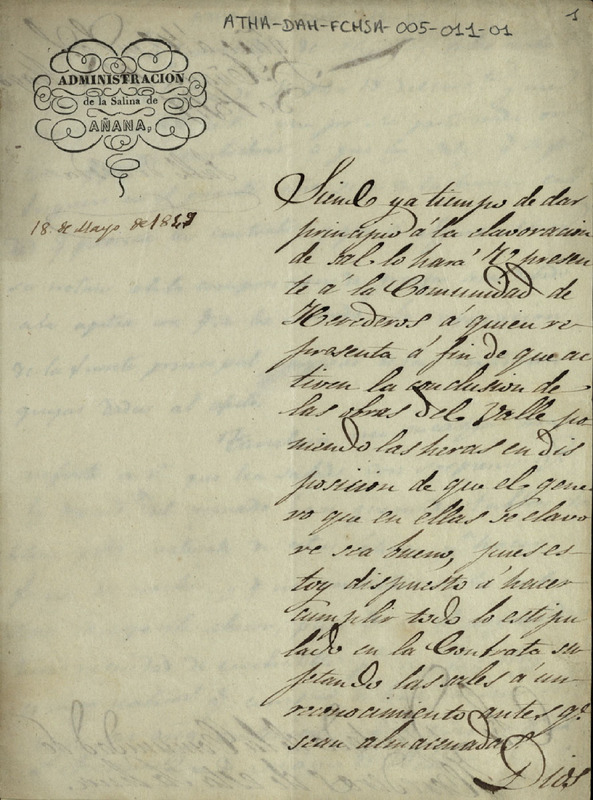 ATHA-DAH-FCHSA-005-011-01
1
ADMINISTRACION
de la Salina de
AÑANA,
18 de Mayo de 1849
Siendo ya tiempo de dar
principio á la elavoracion
de sal lo hará V presen
te á la Comunidad de
Herederos á quien re
presenta á fin de que ac
tiven la conclusion de
las obras del Valle po
niendo las heras en dis
posicion de que el gene
ro que en ellas se elavo
re sea bueno, pues es
toy dispuesto á hacer
cumplir todo lo estipu
lado en la Contrata su
jetando las sales á un
reconocimiento antes q.e
sean almacenadas
Dios